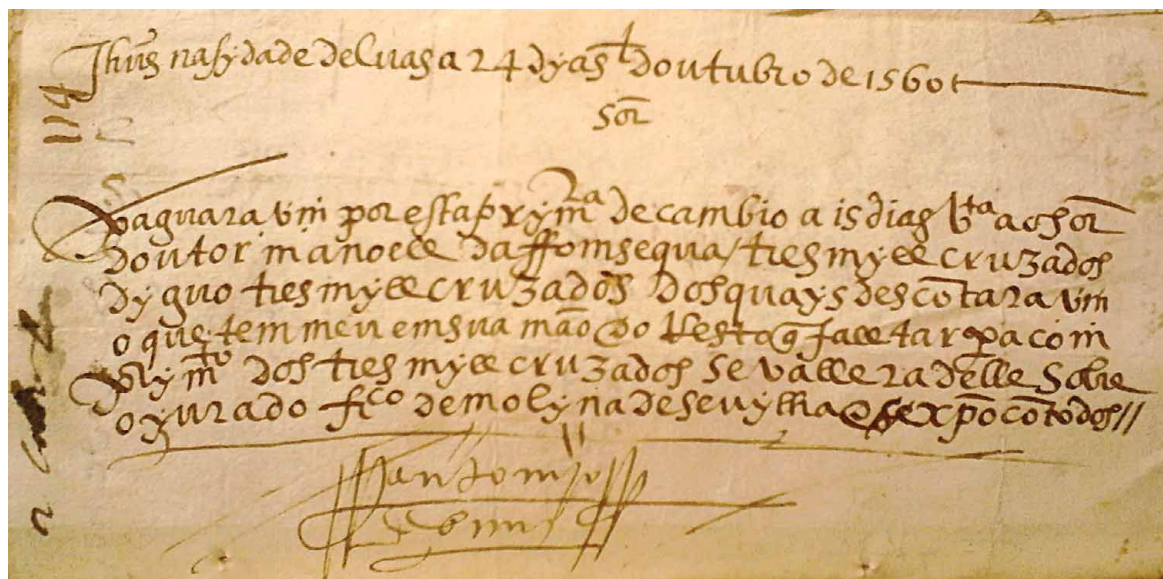 Jhūs na sydade delvas a 24 dyas doutubro de 1560
Sor
114
paguara vm por esta prymra de cambio a 15 dias vta ao sor
doutor manoell daffomsequa / tres myll cruzados
dyguo tres myll cruzados dos quays descōtara vm
o que tem meu em sua mão e do Resto q̄ falltar pa com
prymto dos tres myll cruzados se vallera delle sobre
o jurado fco de molyna de sevylha e xpō cō todos //